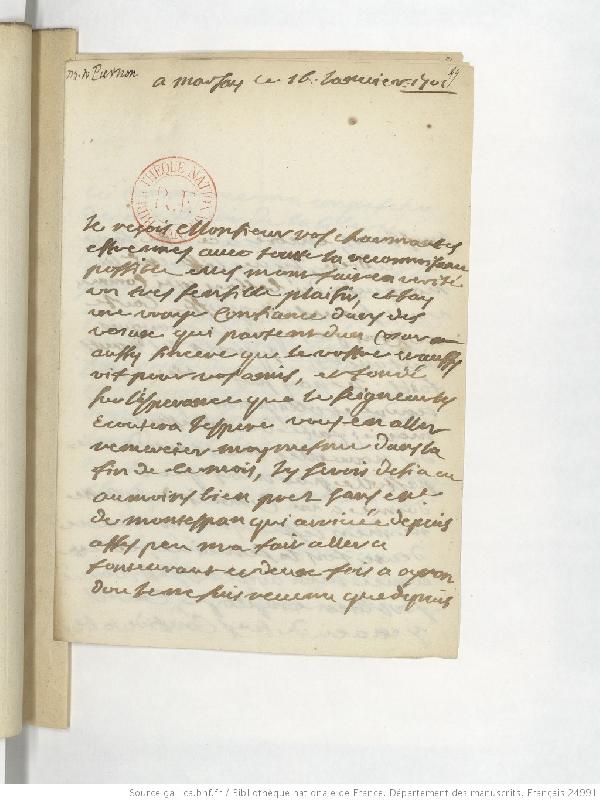 m. de Purnon
a marsay ce 16. Janvier 1701
64
BIBLIOTHEQUE NATIONALE
R.F.
Je reçois Monsieur vos charmantes
estrennes avec toute la reconnoissance
possible elles mont fait en verité
un tres sensible plaisir, et jay
une vraye confiance dans des
voeux qui partent dun Coeur
aussy sincere que le vostre et aussy
vif pour vos amis, et fondé
sur lesperance que le Seigneur les
Ecoutera Jespere vous en aller
remercier moy mesme dans la
fin de ce mois, Jy serois desja ou
au moins bien pret sans
de montespan qui arrivée depuis
assés peu ma fait aller a
fontevraut et deux fois a oyron
dou Je ne suis revenu que depuis
Source gallica.bnf.fr / Bibliothèque nationale de France. Département des manuscrits. Français 24991